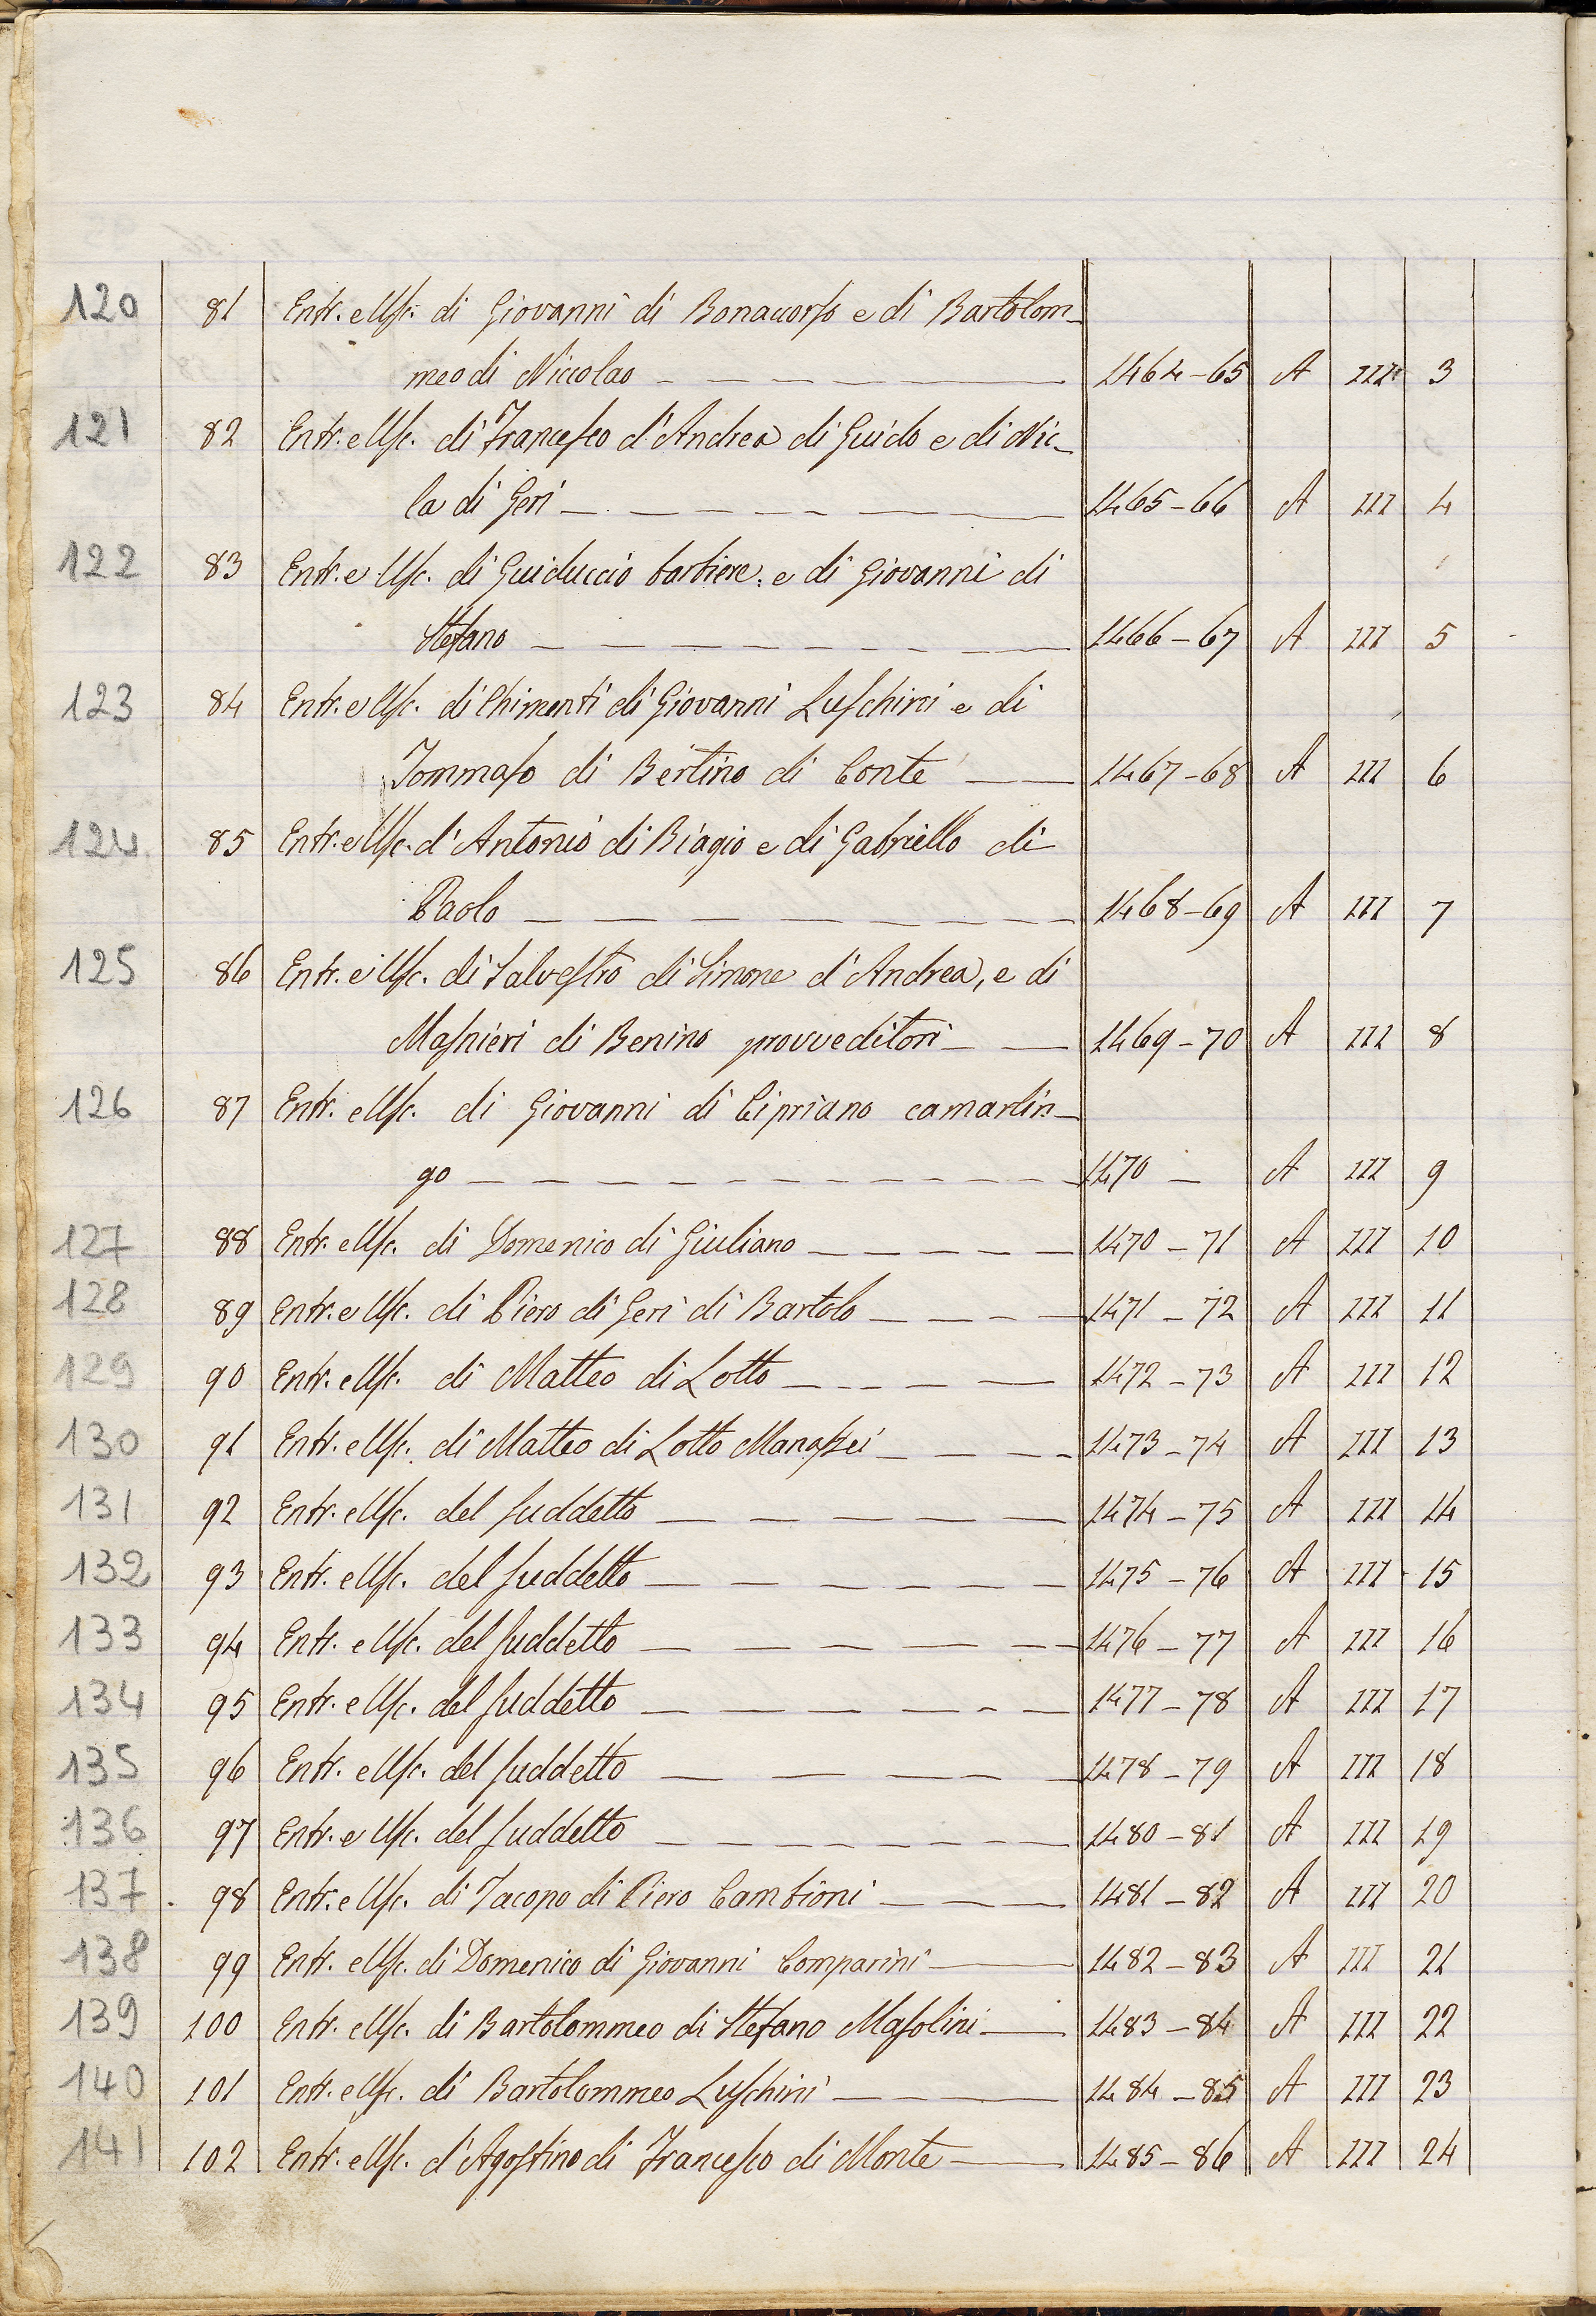 120 81 Entr. e Usc. di Giovanni di Bonacorso e di Bartolom-
meo di Niccolao 1464-65 A III 3
121 82 Entr. e Usc. di Francesco d'Andrea di Guido e di Nic-
la di Geri 1465-66 A III 4
122 83 Entr. e Usc. di Guiduccio barbiere e di Giovanni di
Stefano 1466-67 A III 5
123 84 Entr. e Usc. di Chimenti di Giovanni Luschini e di
Tommaso di Bertino di Conte 1467-68 A III 6
124 85 Entr. e Usc. d'Antonio di Biagio e di Gabriello di
Paolo 1468-69 A III 7
125 86 Entr. e Usc. di Salvestro di Simone d'Andrea, e di
Masnieri di Benino provveditori 1469-70 A III 8
126 87 Entr. e Usc. di Giovanni di Cipriano camarlin-
go 1470 - A III 9
127 88 Entr. e Usc. di Domenico di Giuliano 1470-71 A III 10
128 89 Entr. e Usc. di Piero di Geri di Bartolo 1471-72 A III 11
129 90 Entr. e Usc. di Matteo di Lotto 1472-73 A III 12
130 91 Entr. e Usc. di Matteo di Lotto Manassei 1473-74 A III 13
131 92 Entr. e Usc. del suddetto 1474-75 A III 14
132 93 Entr. e Usc. del suddetto 1475-76 A III 15
133 94 Entr. e Usc. del suddetto 1476-77 A III 16
134 95 Entr. e Usc. del suddetto 1477-78 A III 17
135 96 Entr. e Usc. del suddetto 1478-79 A III 18
136 97 Entr. e Usc. del suddetto 1480-81 A III 19
137 98 Entr. e Usc. di Jacopo di Piero Cambioni 1481-82 A III 20
138 99 Entr. e Usc. di Domenico di Giovanni Comparini 1482-83 A III 21
139 100 Entr. e Usc. di Bartolommeo di Stefano Masolini 1483-84 A III 22
140 101 Entr. e Usc. di Bartolommeo Luschini 1484-85 A III 23
141 102 Entr. e Usc. d'Agostino di Francesco di Monte 1485-86 A III 24